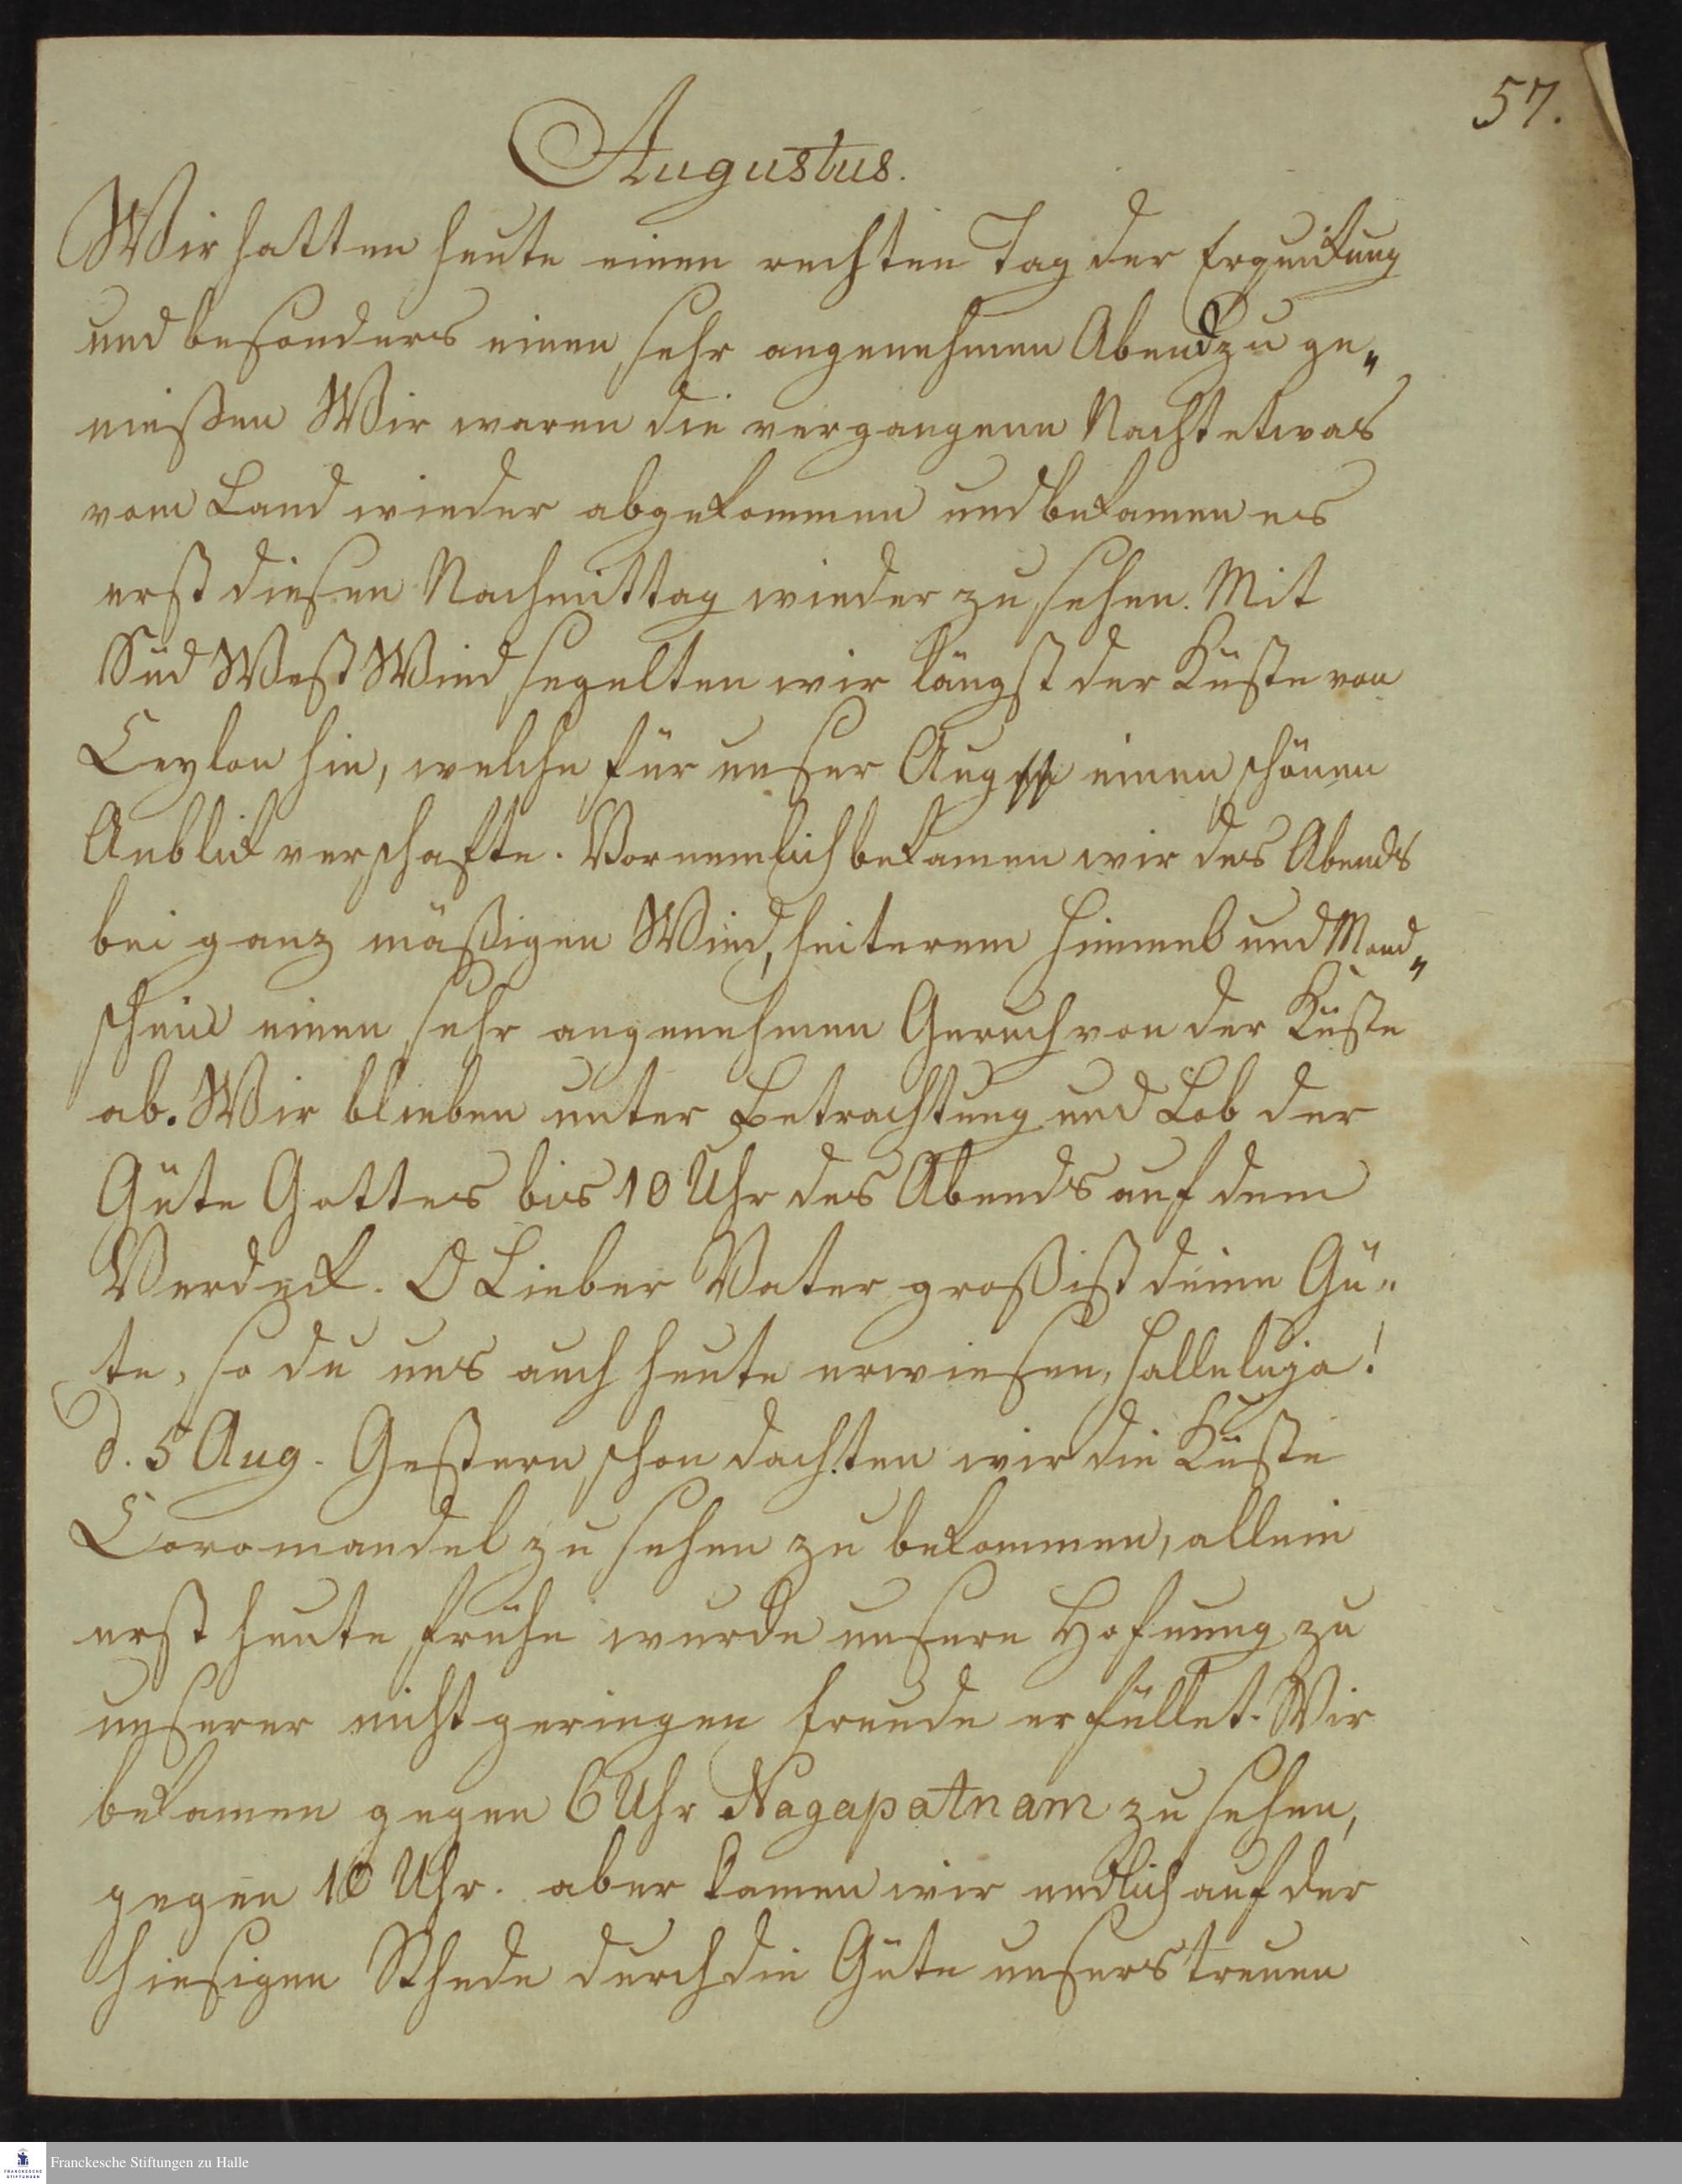 57.
Augustus.
Wir hatten heute einen rechten Tag der Erquickung
und besonders einen sehr angenehmen Abend zu ge„
nießen Wir waren die vergangene Nacht etwas
vom Land wieder abgekommen und bekamen es
erst diesen Nachmittag wieder zu sehen. Mit
Süd West Wind segelten wir längst der Küste von
Ceylon hin, welche für unser Aug einen schönen
Anblick verschafte. Vornemlich bekamen wir des Abends
bei ganz mäßigen Wind, heiterem Himmel und Mond„
schein einen sehr angenehmen Geruch von der Küste
ab. Wir blieben unter Betrachtung und Lob der
Güte Gottes bis 10 Uhr des Abends auf dem
Verdeck. O Lieber Vater groß ist deine Gü„
te, so du uns auch heute erwiesen, Halleluja!
d. 5 Aug. Gestern schon dachten wir die Küste
Coromandel zu sehen zu bekommen, allein
erst heute frühe wurde unsere Hofnung zu
unserer nicht geringen Freude erfüllet. Wir
bekamen gegen 6 Uhr Nagapatnam zu sehen,
gegen 10 Uhr. aber kamen wir endlich auf der
hiesigen Rhede durch die Güte unsers treuen
Franckesche Stiftungen zu Halle